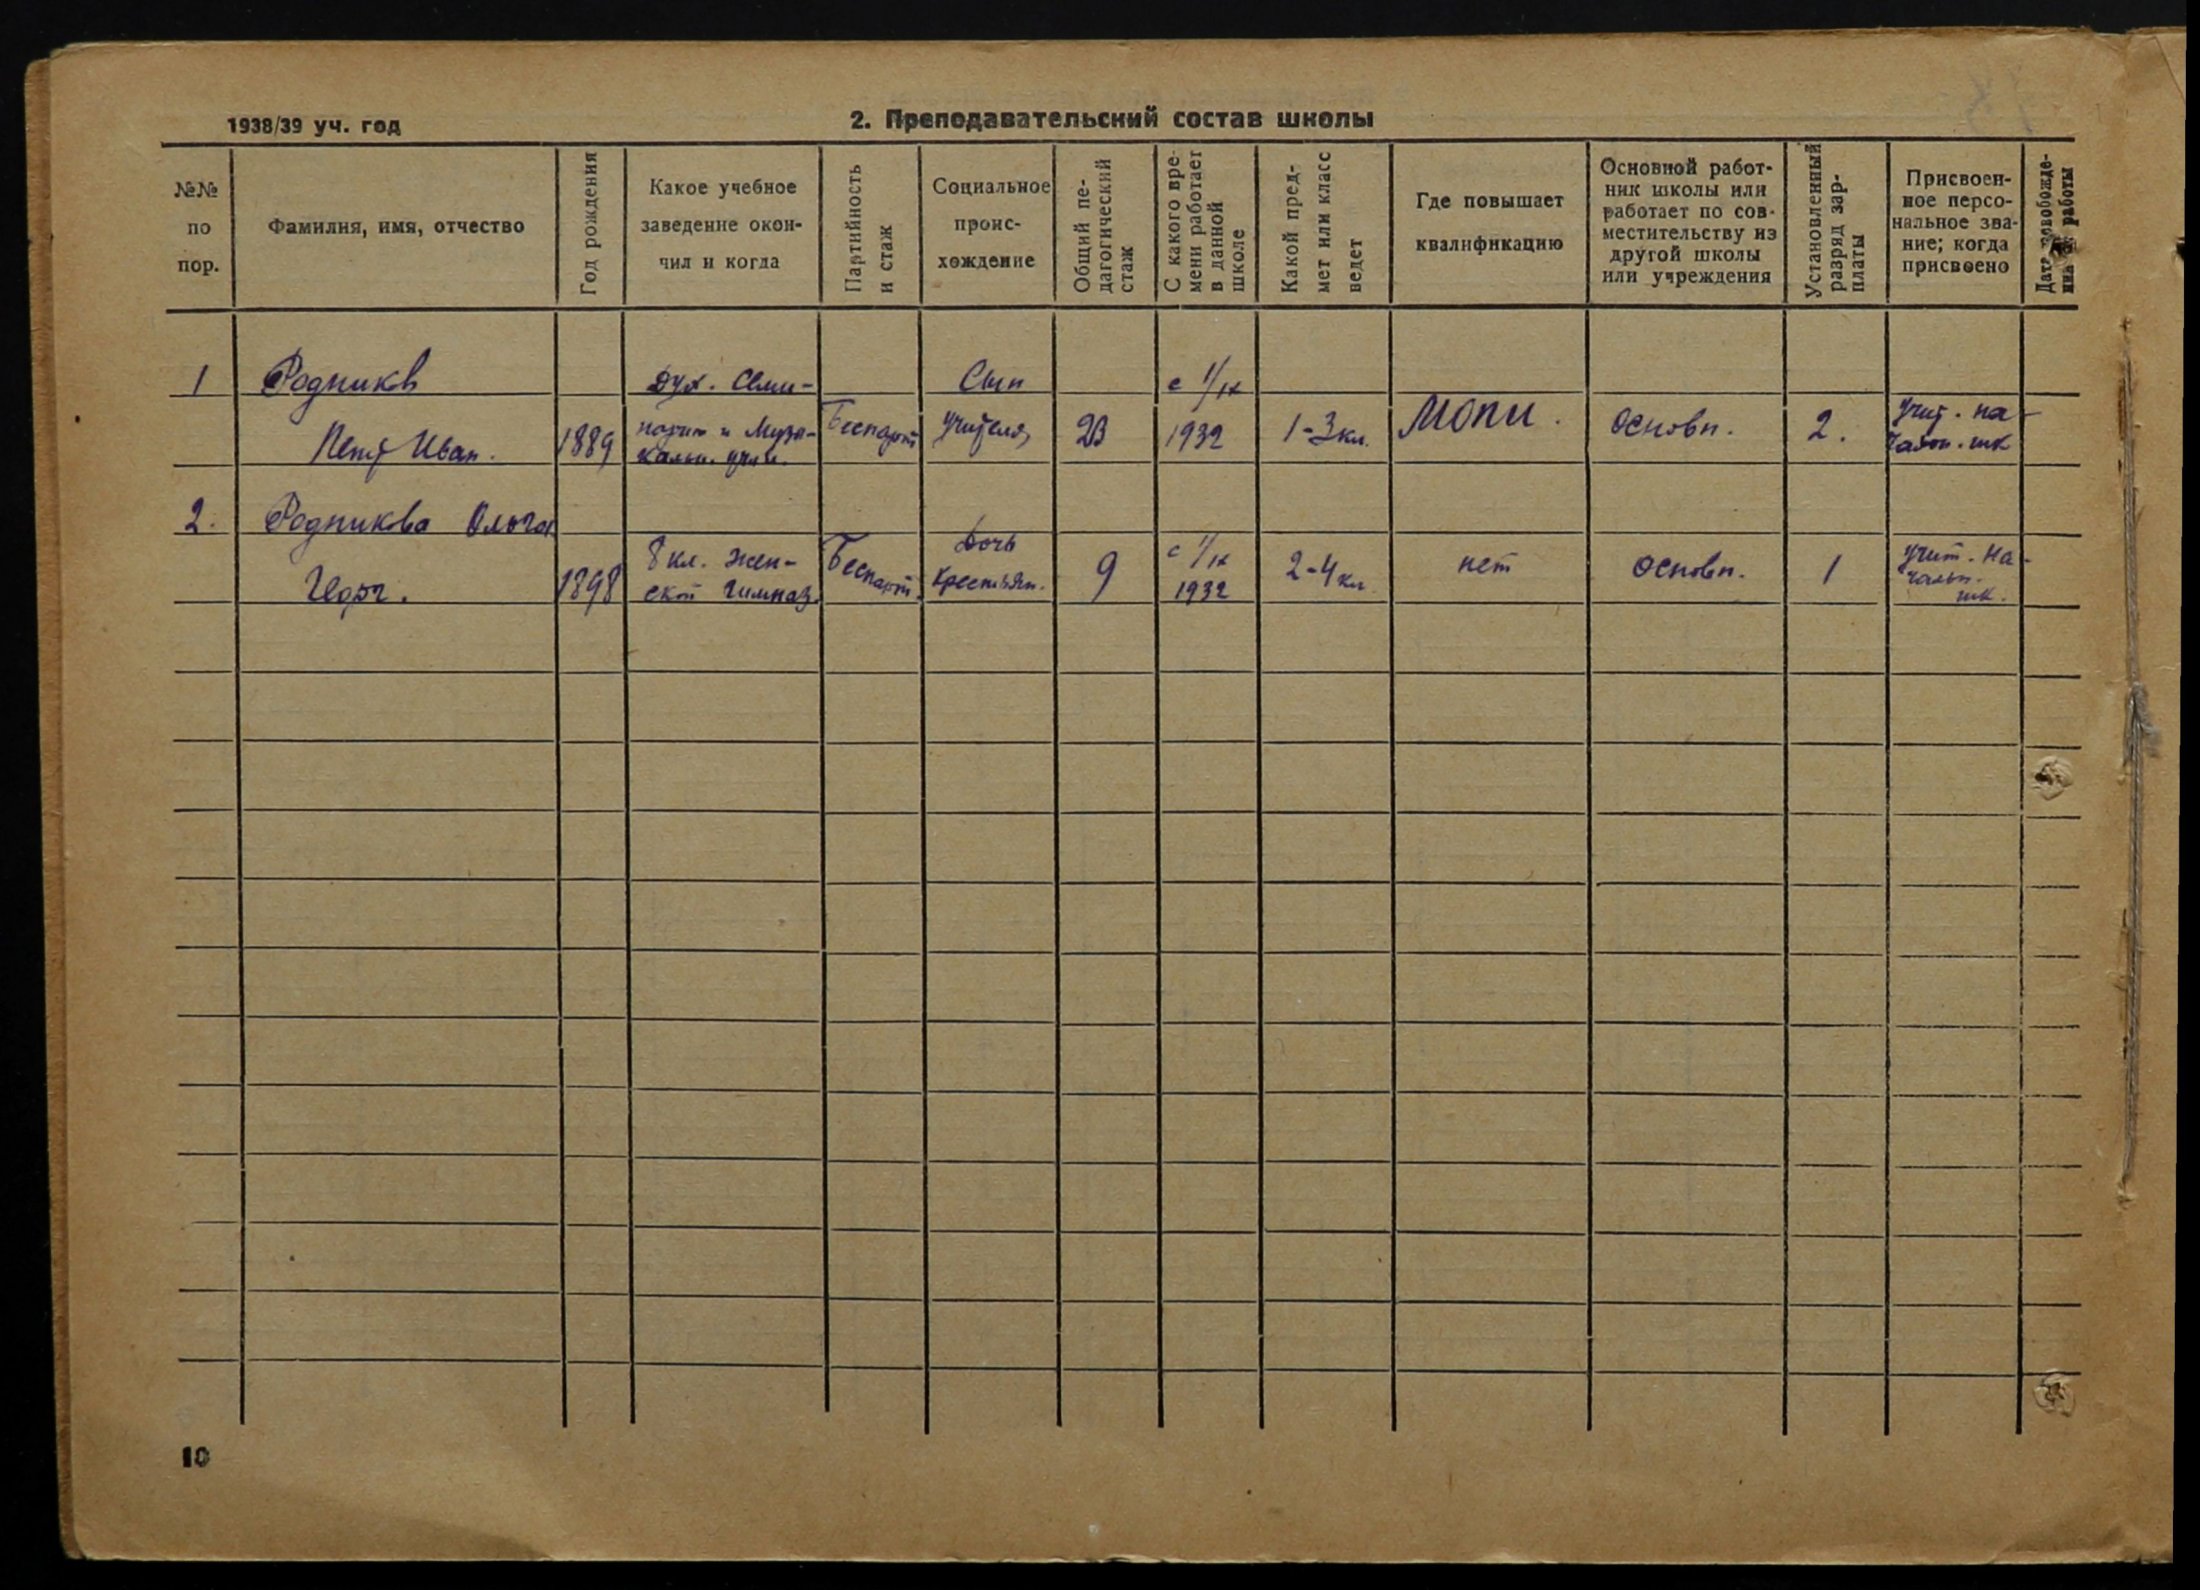 1938/39 уч. год
2. Преподавательский состав школы
№№
по
пор.
Фамилия, имя, отчество
Год рождения
Какое учебное
заведение окон-
чил и когда
Партийность
и стаж
Социальное
проис-
хождение
Общий пе-
дагогический
стаж
С какого вре-
мени работает
в данной
школе
Какой пред-
мет или класс
ведет
Где повышает
квалификацию
Основной работ-
ник школы или
работает по сов-
местительству из
другой школы
или учреждения
Установленный
разряд зар-
платы
Присвоен-
ное персо-
нальное зва-
ние; когда
присвоено
работы
1
Родников
Петр Иван.
1889
Дух. Семи-
нарию и Музы-
кальн. учил.
Беспарт
Сын
учителя
23
с 1/IX
1932
1-3 кл.
МОПИ.
основн.
2.
Учит. на-
чальн. шк
2.
Родникова Ольга
Георг.
1898
8 кл. жен-
ской гимназ.
Беспарт.
Дочь
крестьян.
9
с 1/IX
1932
2-4 кл
нет
основн.
1
Учит. На-
чальн.
шк.
10